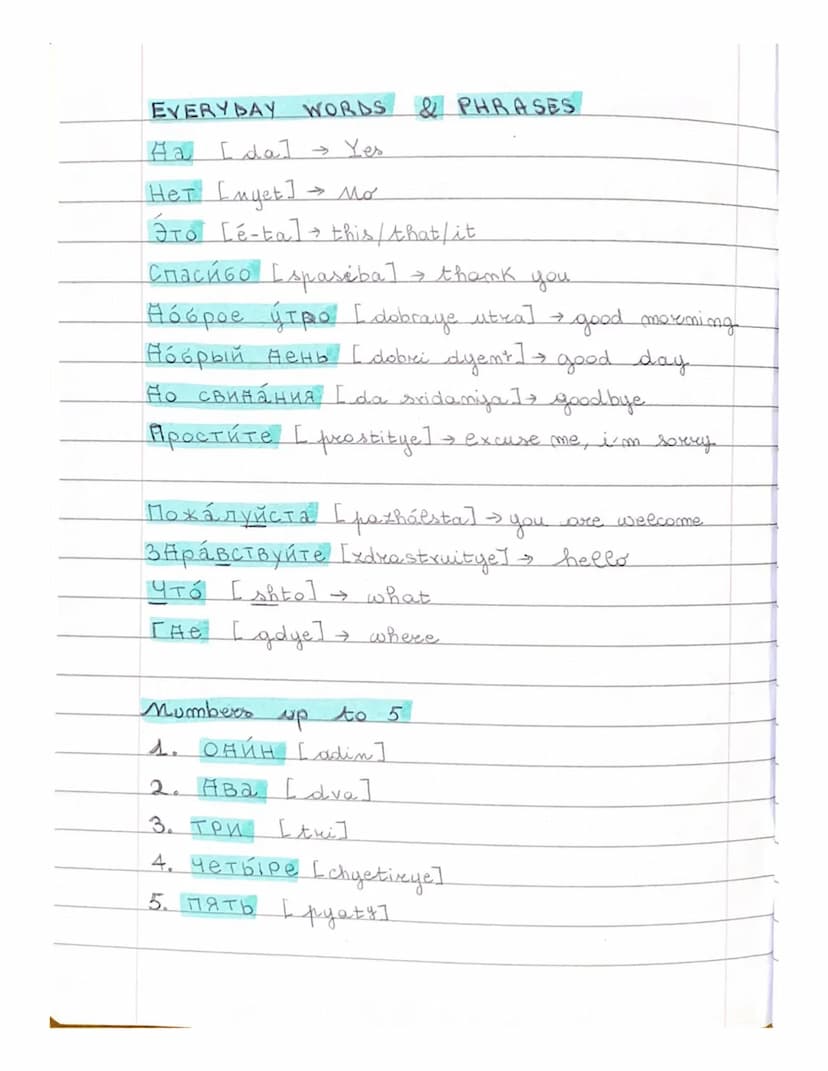 EVERYDAY WORDS & PHRASES
Да [da] → Yes
Нет [nyet] → No
Э́то [é-ta] → this/that/it
Спаси́бо [spasiba] → thank you
До́брое у́тро [dobraye utra] → good morning
До́брый день [dobri dyenʲ] → good day
До свида́ния [da svidaniya] → goodbye
Прости́те [prostitye] → excuse me, i'm sorry
Пожа́луйста [pazhálsta] → you are welcome
Здра́вствуйте [zdrastvuitye] → hello
Что́ [shto] → what
Где [gdye] → where
Numbers up to 5
1. оди́н [adin]
2. Два [dva]
3. три [tri]
4. четы́ре [chyetirye]
5. пять [pyatʲ]